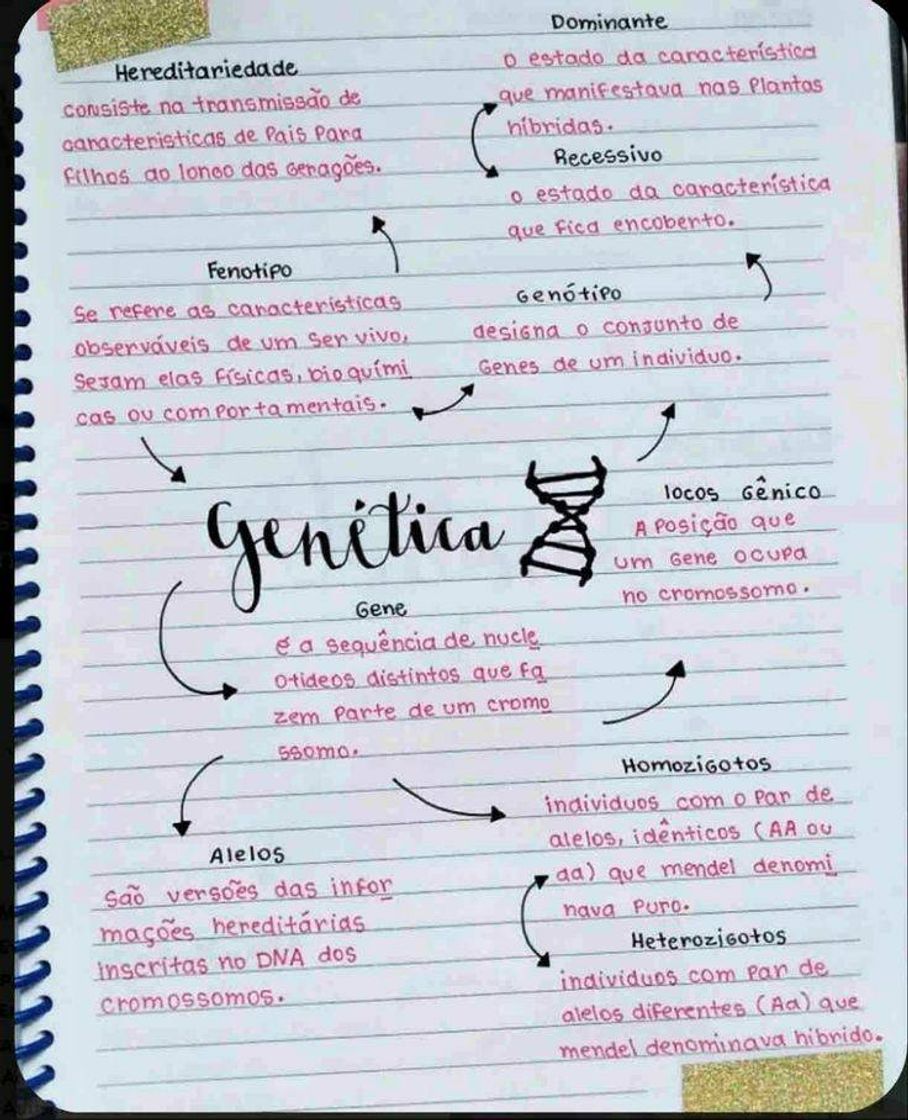 Hereditariedade
consiste na transmissão de
caracteristicas de Pais Para
Filhos ao longo das Gerações.
Dominante
o estado da característica
que manifestava nas Plantas
híbridas.
Recessivo
o estado da característica
que fica encoberto.
Fenotipo
Se refere as características
observáveis de um ser vivo,
Sejam elas Físicas, bioquími
cas ou comportamentais.
Genótipo
designa o conjunto de
Genes de um individuo.
Genética
locos Gênico
A Posição que
um Gene ocupa
no cromossomo.
Gene
é a sequência de nucle
otídeos distintos que fa
zem Parte de um cromo
ssomo.
Alelos
São versões das infor
mações hereditárias
inscritas no DNA dos
cromossomos.
Homozigotos
individuos com o Par de
alelos, idênticos (AA ou
aa) que mendel denomi
nava Puro.
Heterozigotos
individuos com Par de
alelos diferentes (Aa) que
mendel denominava hibrido.